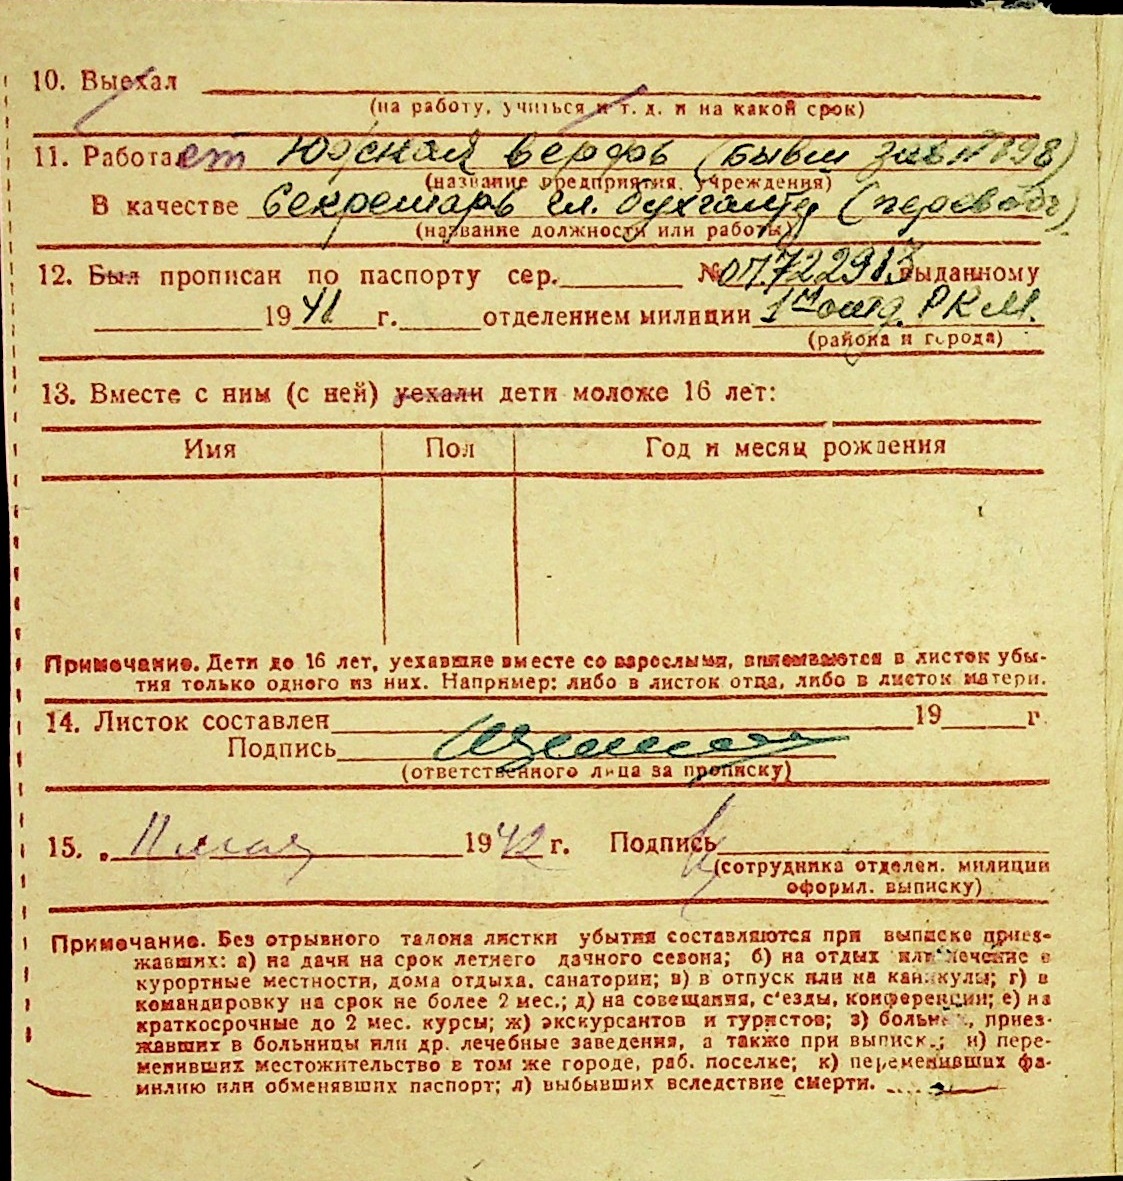 10. Выехал
(на работу, учиться и т. д. и на какой срок)
11. Работает Юрская верфь (бывш зав № 898)
(название предприятия, учреждения)
В качестве Секретарь гл. бухгалтер (перевод
(название должности или работы)
12. Был прописан по паспорту сер. № 722913 выданному
1941 г. отделением милиции 1м отд. РКМ.
(района и города)
13. Вместе с ним (с ней) уехали дети моложе 16 лет:
Имя Пол Год и месяц рождения
Примечание. Дети до 16 лет, уехавшие вместе со взрослыми, вписываются в листок убы-
тия только одного из них. Например: либо в листок отца, либо в листок матери.
14. Листок составлен 19 г
Подпись
(ответственного лица за прописку)
15. 11 мая 1942 г. Подпись
(сотрудника отделен. милиции
оформл. выписку)
Примечание. Без отрывного талона листки убытия составляются при выписке приез-
жавших: а) на дачи на срок летнего дачного сезона; б) на отдых или лечение в
курортные местности, дома отдыха, санатории; в) в отпуск или на каникулы; г) в
командировку на срок не более 2 мес.; д) на совещания, с'езды, конференции; е) на
краткосрочные до 2 мес. курсы; ж) экскурсантов и туристов; з) больных, приез-
жавших в больницы или др. лечебные заведения, а также при выписк.; и) пере-
менивших местожительство в том же городе, раб. поселке; к) переменивших фа-
милию или обменявших паспорт; л) выбывших вследствие смерти.